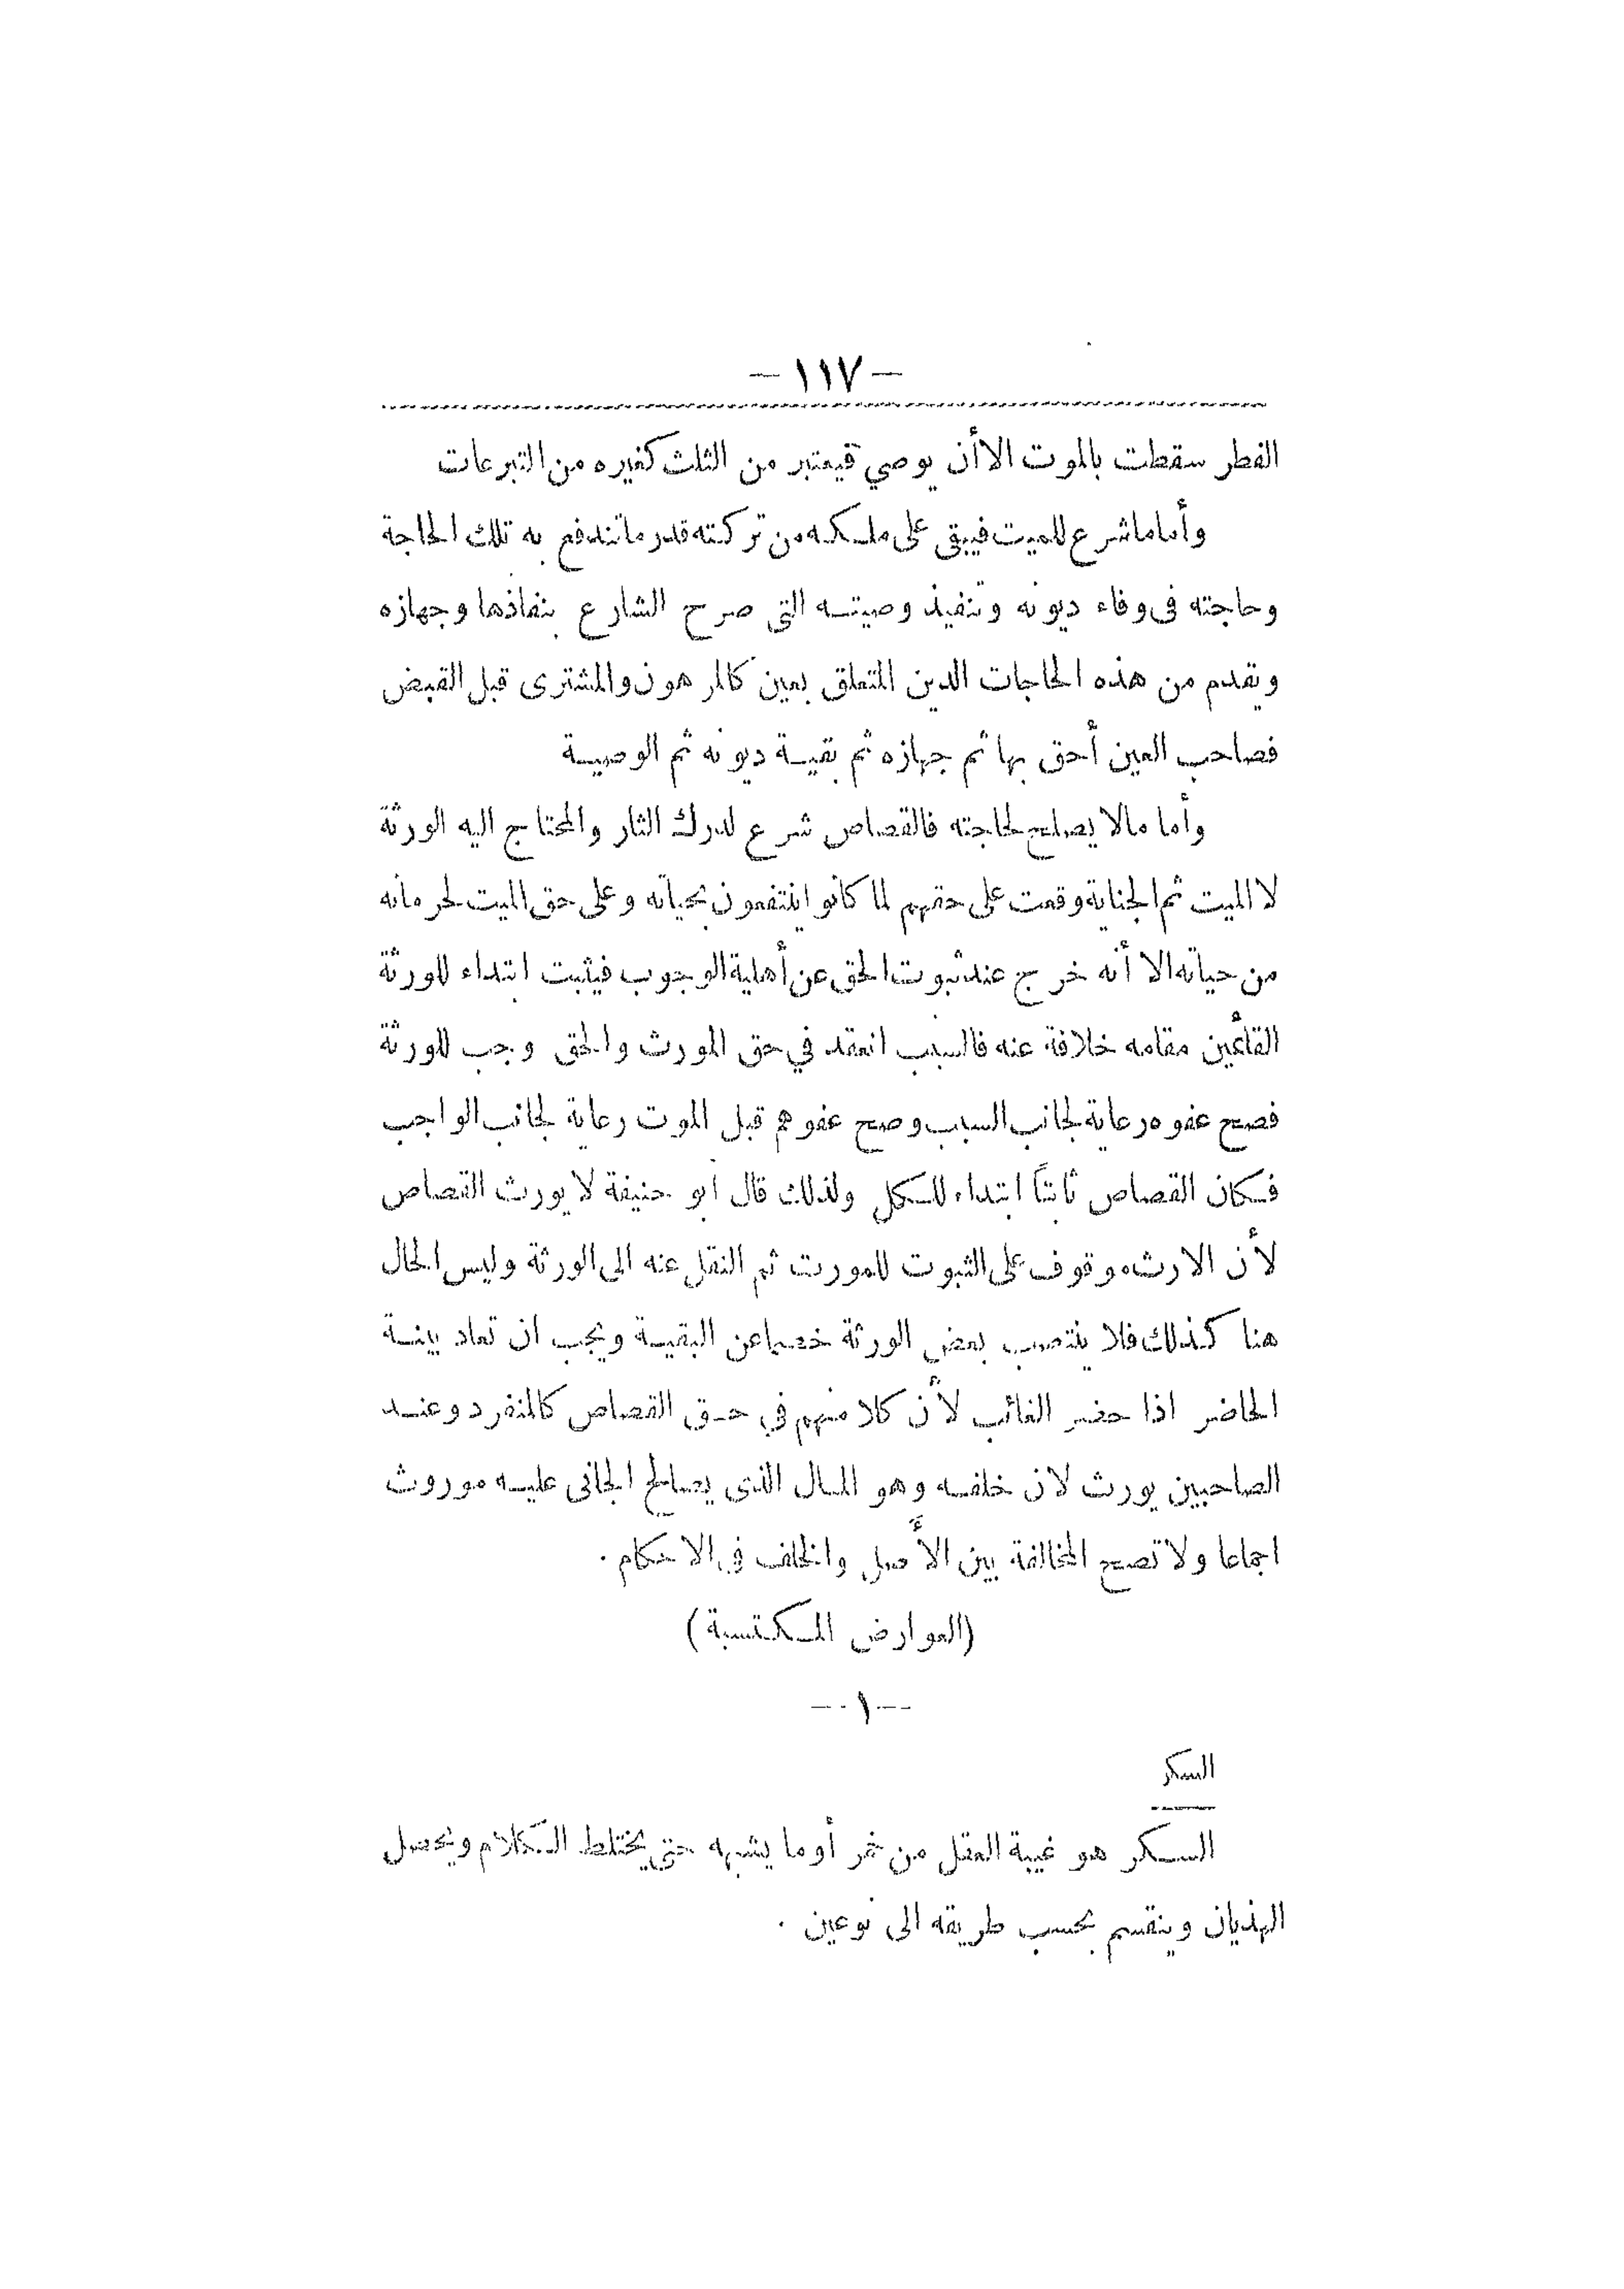 — ١١٧ —
الفطر سقطت بالموت الا أن يوصي فيعتبر من الثلث كغيره من التبرعات
وأما ما شرع للميت فيبقى على ملكه من تركته قدر ما تندفع به تلك الحاجة
وحاجته فى وفاء ديونه وتنفيذ وصيته التى صرح الشارع بنفاذها وجهازه
ويقدم من هذه الحاجات الدين المتعلق بعين كالمرهون والمشترى قبل القبض
فصاحب العين أحق بها ثم جهازه ثم بقية ديونه ثم الوصية
وأما ما لا يصلح لحاجته فالقصاص شرع لدرك الثار والمحتاج اليه الورثة
لا الميت ثم الجناية وقعت على حقهم لما كانوا ينتفعون بحياته وعلى حق الميت لحرمانه
من حياته الا أنه خرج عند ثبوت الحق عن أهلية الوجوب فيثبت ابتداء للورثة
القائمين مقامه خلافة عنه فالسبب انعقد في حق المورث والحق وجب للورثة
فصح عفوه رعاية لجانب السبب وصح عفوهم قبل الموت رعاية لجانب الواجب
فكان القصاص ثابتاً ابتداء للكل ولذلك قال ابو حنيفة لا يورث القصاص
لأن الارث موقوف على الثبوت للمورث ثم النقل عنه الى الورثة وليس الحال
هنا كذلك فلا ينتصب بعض الورثة خصما عن البقية ويجب ان تعاد بينة
الحاضر اذا حضر الغائب لأن كلا منهم في حق القصاص كالمنفرد وعند
الصاحبين يورث لان خلفه وهو المال الذى يصالح الجانى عليه موروث
اجماعا ولا تصح المخالفة بين الأصل والخلف فى الاحكام .
(العوارض المكتسبة)
— ١ —
السكر
السكر هو غيبة العقل من خمر أو ما يشبهه حتى يختلط الكلام ويحصل
الهذيان وينقسم بحسب طريقه الى نوعين .